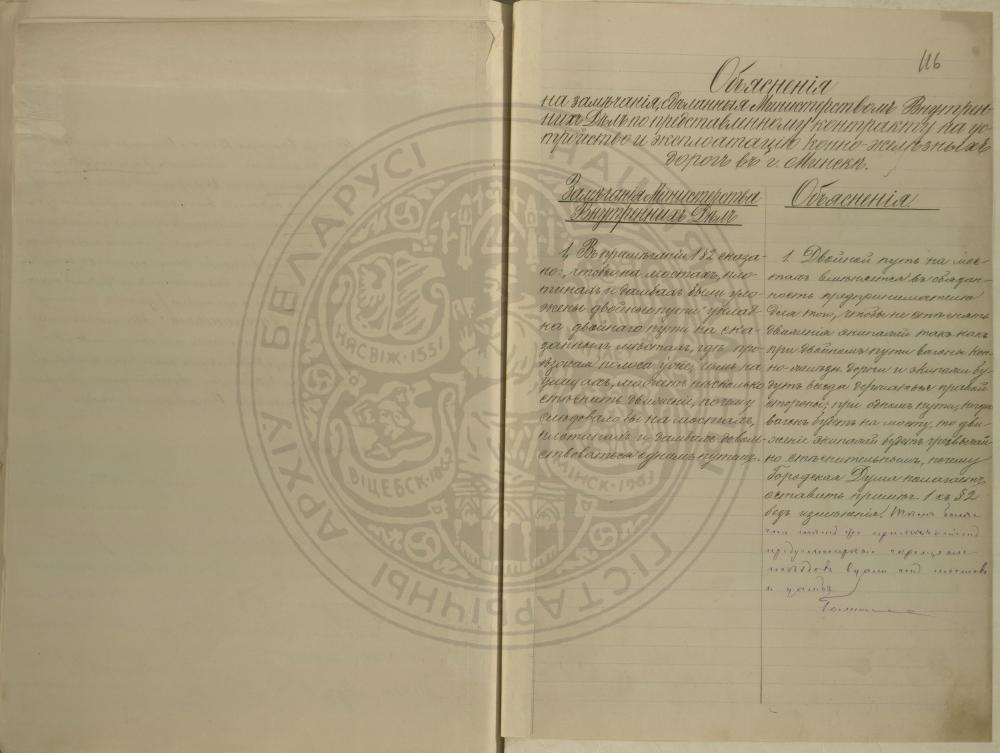 116
Объясненія
на замѣчанія, сдѣланныя Министерствомъ Внутрен-
нихъ Дѣлъ по представленному контракту на ус-
тройство и эксплоатацію конно-желѣзныхъ
дорогъ въ г. Минскѣ.
Замѣчанія Министерства
Внутреннихъ Дѣлъ
1, Въ примѣчаніи 1 § 2 сказа-
но, чтобы на мостахъ, пло-
тинахъ и дамбахъ были уло-
жены двойные пути; уклад-
ка двойнаго пути на ска-
занныхъ мѣстахъ, гдѣ про-
ѣзжая полоса уже, чѣмъ на
улицахъ, можетъ нѣсколько
стѣснить движеніе, почему
слѣдовало бы на мостахъ,
плотинахъ и дамбахъ доволь-
ствоваться однимъ путемъ.
Объясненія
1. Двойной путь на мос-
тахъ вмѣняется въ обязан-
ность предпринимателю
для того, чтобы не стѣснять
движенія экипажей такъ какъ
при двойномъ пути вагоны кон-
но-желѣзн. дороги и экипажи бу-
дутъ всегда держаться правой
стороны; при одномъ пути, когда
вагонъ будетъ на мосту, то дви-
женіе экипажей будетъ чрезвычай-
но стѣснительнымъ, почему
Городская Дума полагаетъ
оставить примѣч. 1 къ § 2
безъ измѣненія.
АРХІЎ БЕЛАРУСІ
НАЦЫЯ
ГІСТАРЫЧНЫ
НЯСВІЖ·1551
ВІЦЕБСК·1863
МІНСК·1963